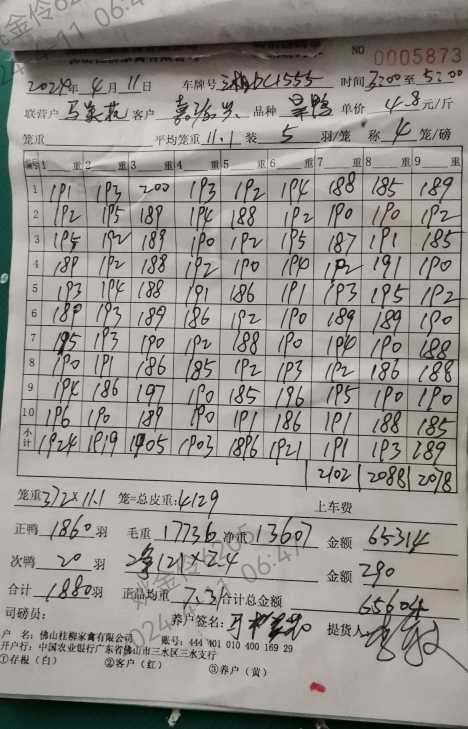 NO 0005873
2024年4月11日 车牌号 时间3:00至5:00
联营户 客户 品种 单价 4.8元/斤
笼重 平均笼重 11.1 装 5 羽/笼 称 4 笼/磅
编号 1 重 2 重 3 重 4 重 5 重 6 重 7 重 8 重 9 重
1 191 193 200 193 192 194 188 185 189
2 192 195 189 194 188 192 190 190 192
3 195 192 189 190 192 195 187 191 185
4 189 192 188 192 190 190 192 191 190
5 193 194 188 191 186 191 193 195 192
6 180 193 189 186 192 190 189 189 190
7 195 193 190 192 188 190 194 190 188
8 190 191 186 185 192 193 192 186 188
9 194 186 197 190 185 186 195 190 190
10 196 190 189 190 191 186 191 188 185
小计 1924 1919 1905 1903 1896 1921 191 193 189
2102 2088 2018
笼重 372×11.1 笼=总皮重: 4129 上车费
正鸭 1860 羽 毛重 17736 净重 13607 金额 65314
次鸭 20 羽 金额 290
合计 1880 羽 正品均重 7.31 合计总金额 65604
司磅员: 养户签名: 提货人:
户 名: 佛山桂柳家禽有限公司 账号: 444 401 010 400 169 29
开户行: 中国农业银行广东省佛山市三水区三水支行
①存根(白) ②客户(红) ③养户(黄)